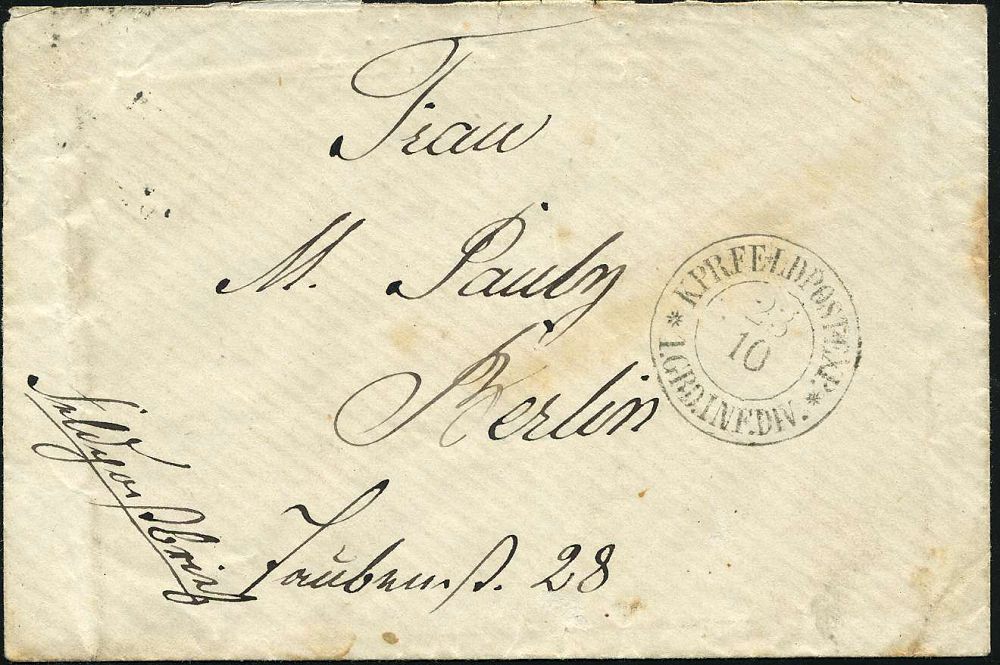 Frau
M. Pauly
Berlin
Taubenst. 28
Feldpostbrief
* K.PR.FELDPOST-EXP. *
1.GRD.INF.DIV.
23
10